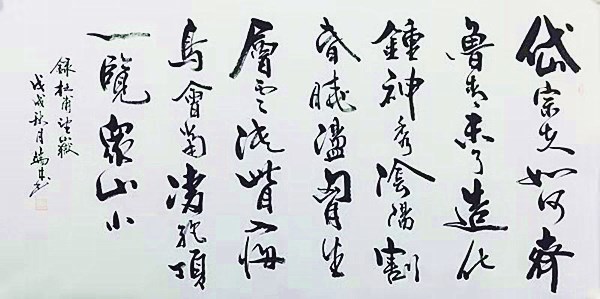 岱宗夫如何齊
魯青未了造化
鍾神秀陰陽割
昏曉盪胷生
層云決眥入歸
鳥會當凌絕頂
一覽衆山小
錄杜甫望嶽
戊戌秋月瑞